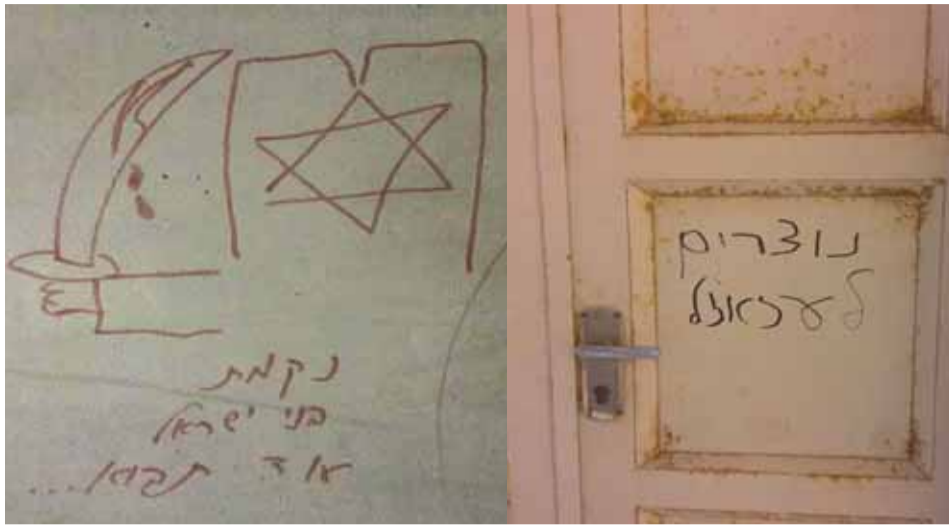 נקמת
בני ישראל
עוד תבוא...
נוצרים
לעזאזל